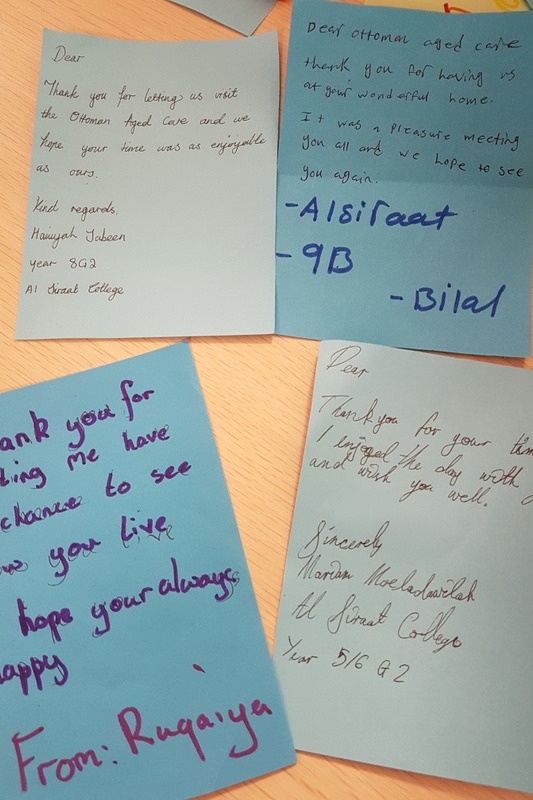 Dear
Thank you for letting us visit
the Ottoman Aged Care and we
hope your time was as enjoyable
as ours.
Kind regards,
Haniyah Jabeen
year 8G2
Al Siraat College
Dear ottoman aged care
thank you for having us
at your wonderful home.
It was a pleasure meeting
you all and we hope to see
you again.
-Alsiraat
-9B
-Bilal
ank you for
ting me have
chance to see
ow you live
hope your always
happy
From: Ruqaiya
Dear
Thankyou for your tim
I enjoyed the day with
and wish you well.
Sincerely
Mariam
Al Siraat College
Year 5/6 G2